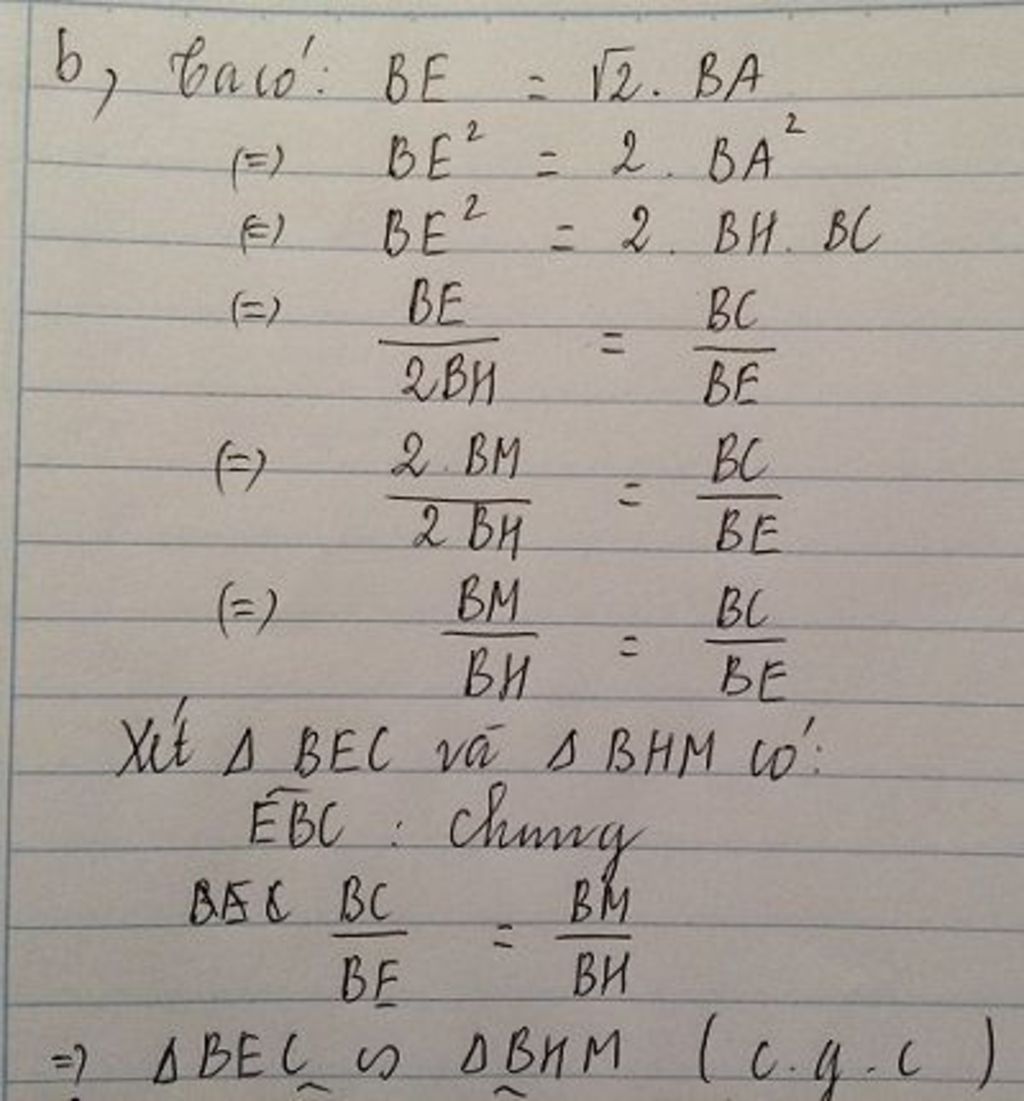 b, Ta có: BE = √2 . BA
(=) BE² = 2 . BA²
(=) BE² = 2 . BH . BC
(=) BE/2BH = BC/BE
(=) 2 . BM/2 BH = BC/BE
(=) BM/BH = BC/BE
Xét Δ BEC và Δ BHM có:
EBC : Chung
BC/BE = BM/BH
=> Δ BEC ∽ Δ BHM ( c.g.c )